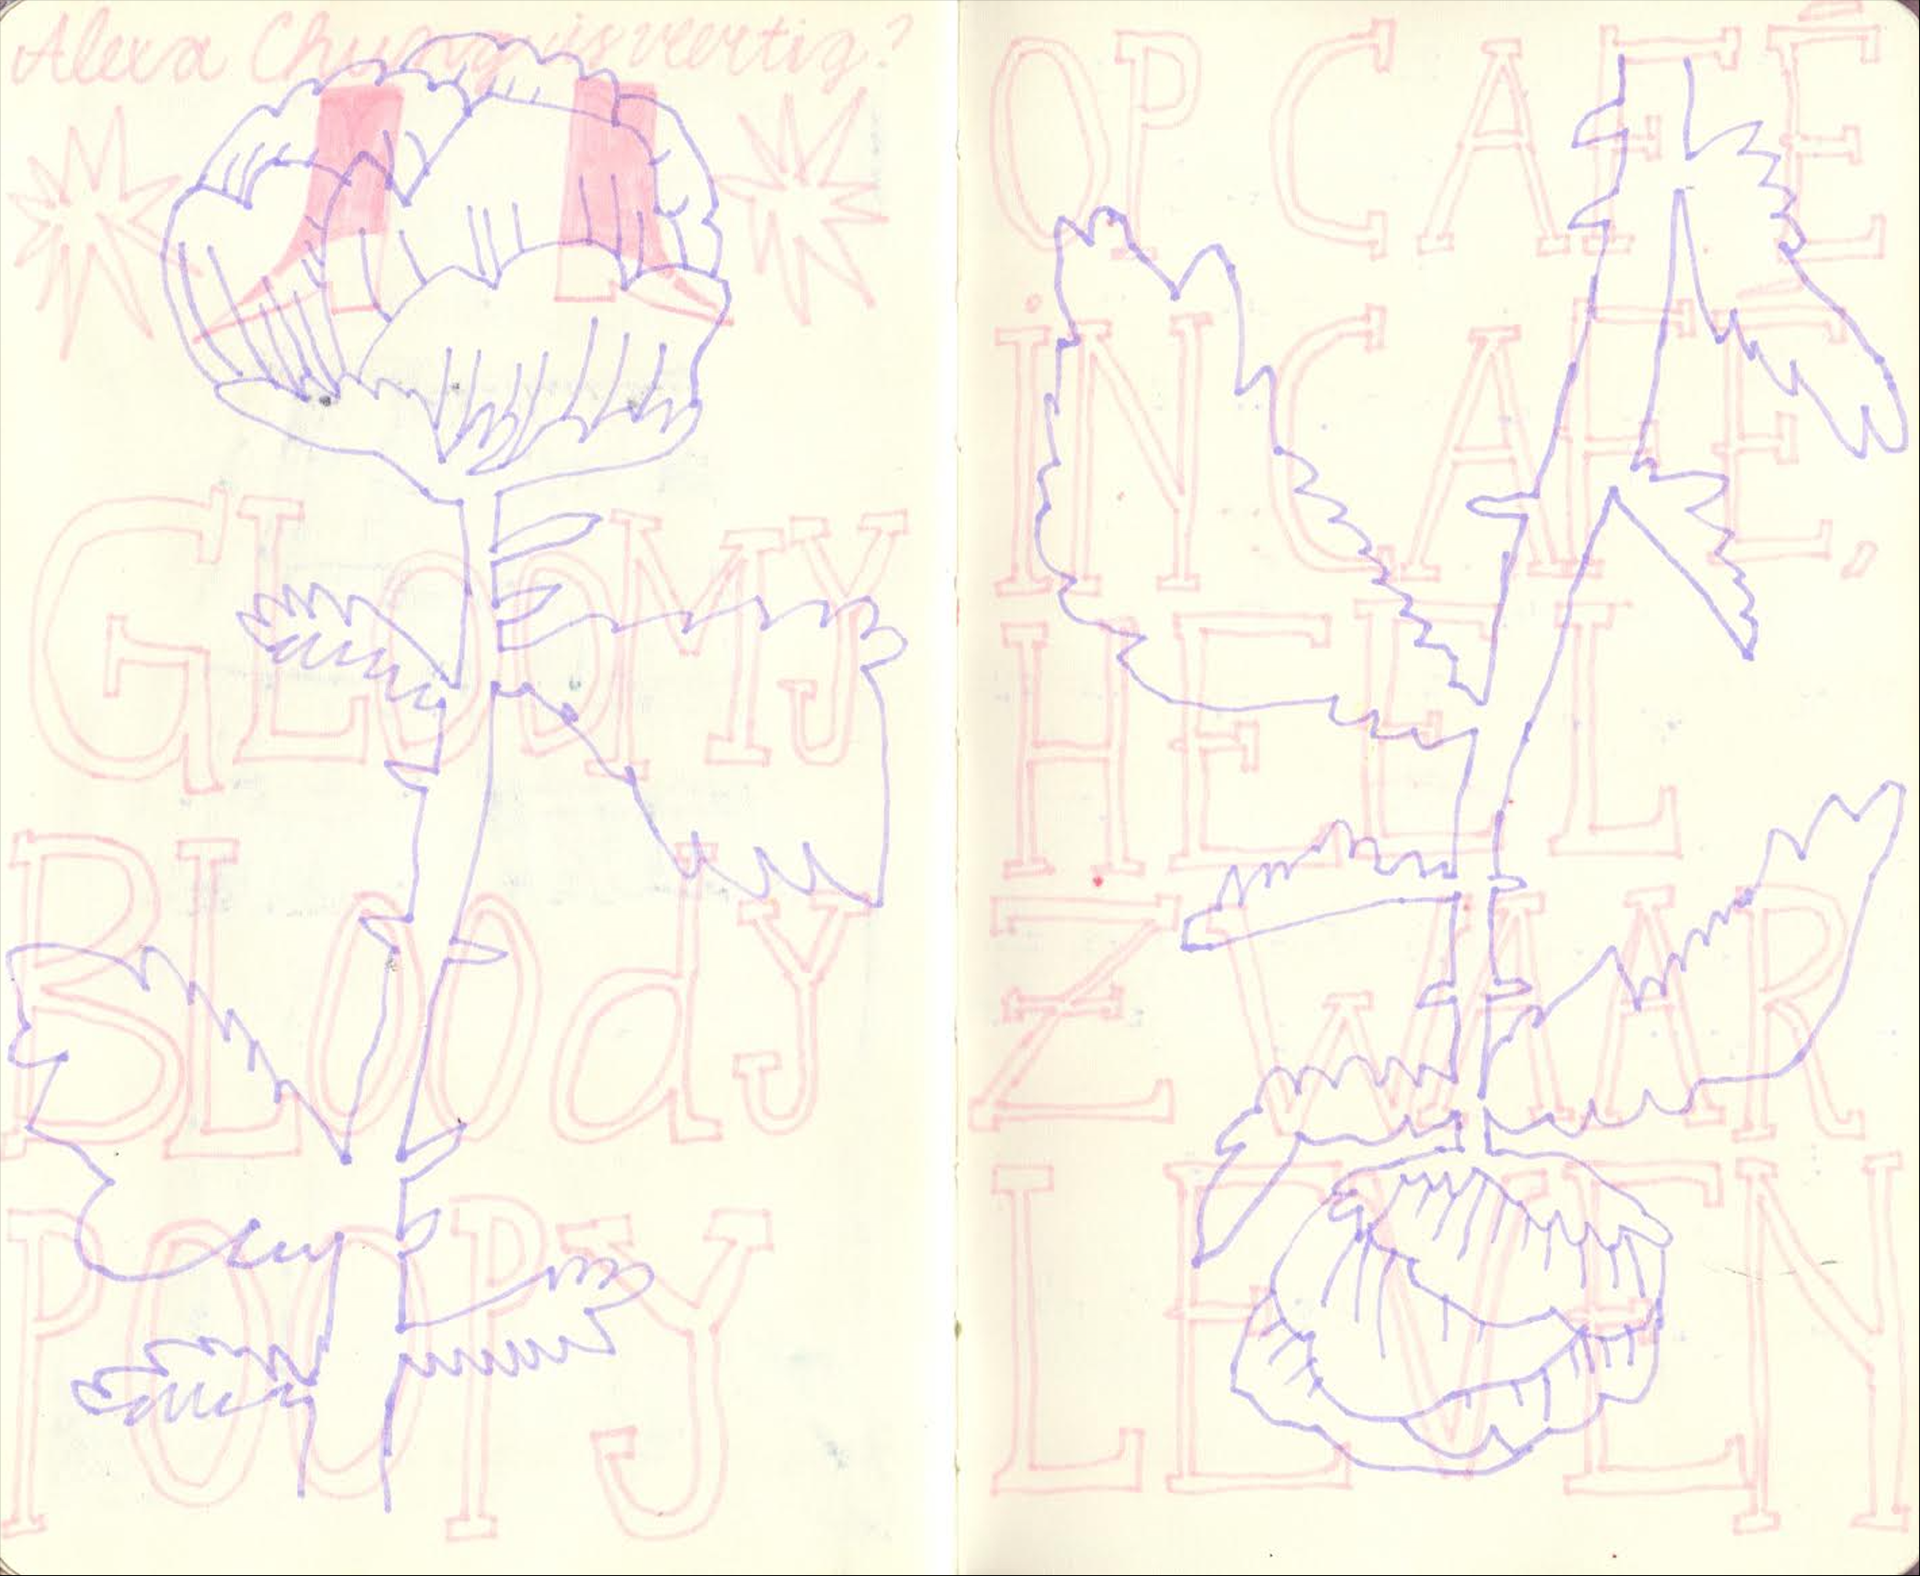 Alexa Chung is veertig?
GLOOMY
BLOOdY
POOPY
OP CAFÉ
iN CAFÉ,
HEEL
ZWAAR
LEVEN